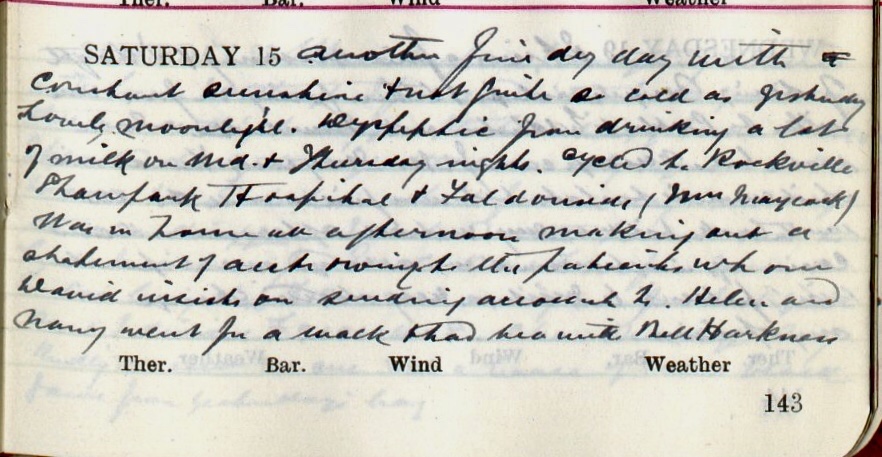 Ther. Bar. Wind Weather
SATURDAY 15 Another fine dry day with
constant sunshine & not quite so cold as yesterday
Lovely moonlight. Dyspeptic from drinking a lot
of milk on Wd. & Thursday nights. Cycled to Rockville
Shawpark Hospital & Faldonside (Mrs Maycock)
Was in home all afternoon making out a
statement of accts owing to the patients whom
David insists on sending accounts to. Helen and
Nancy went for a walk & had tea with Nell Harkness
Ther. Bar. Wind Weather
143